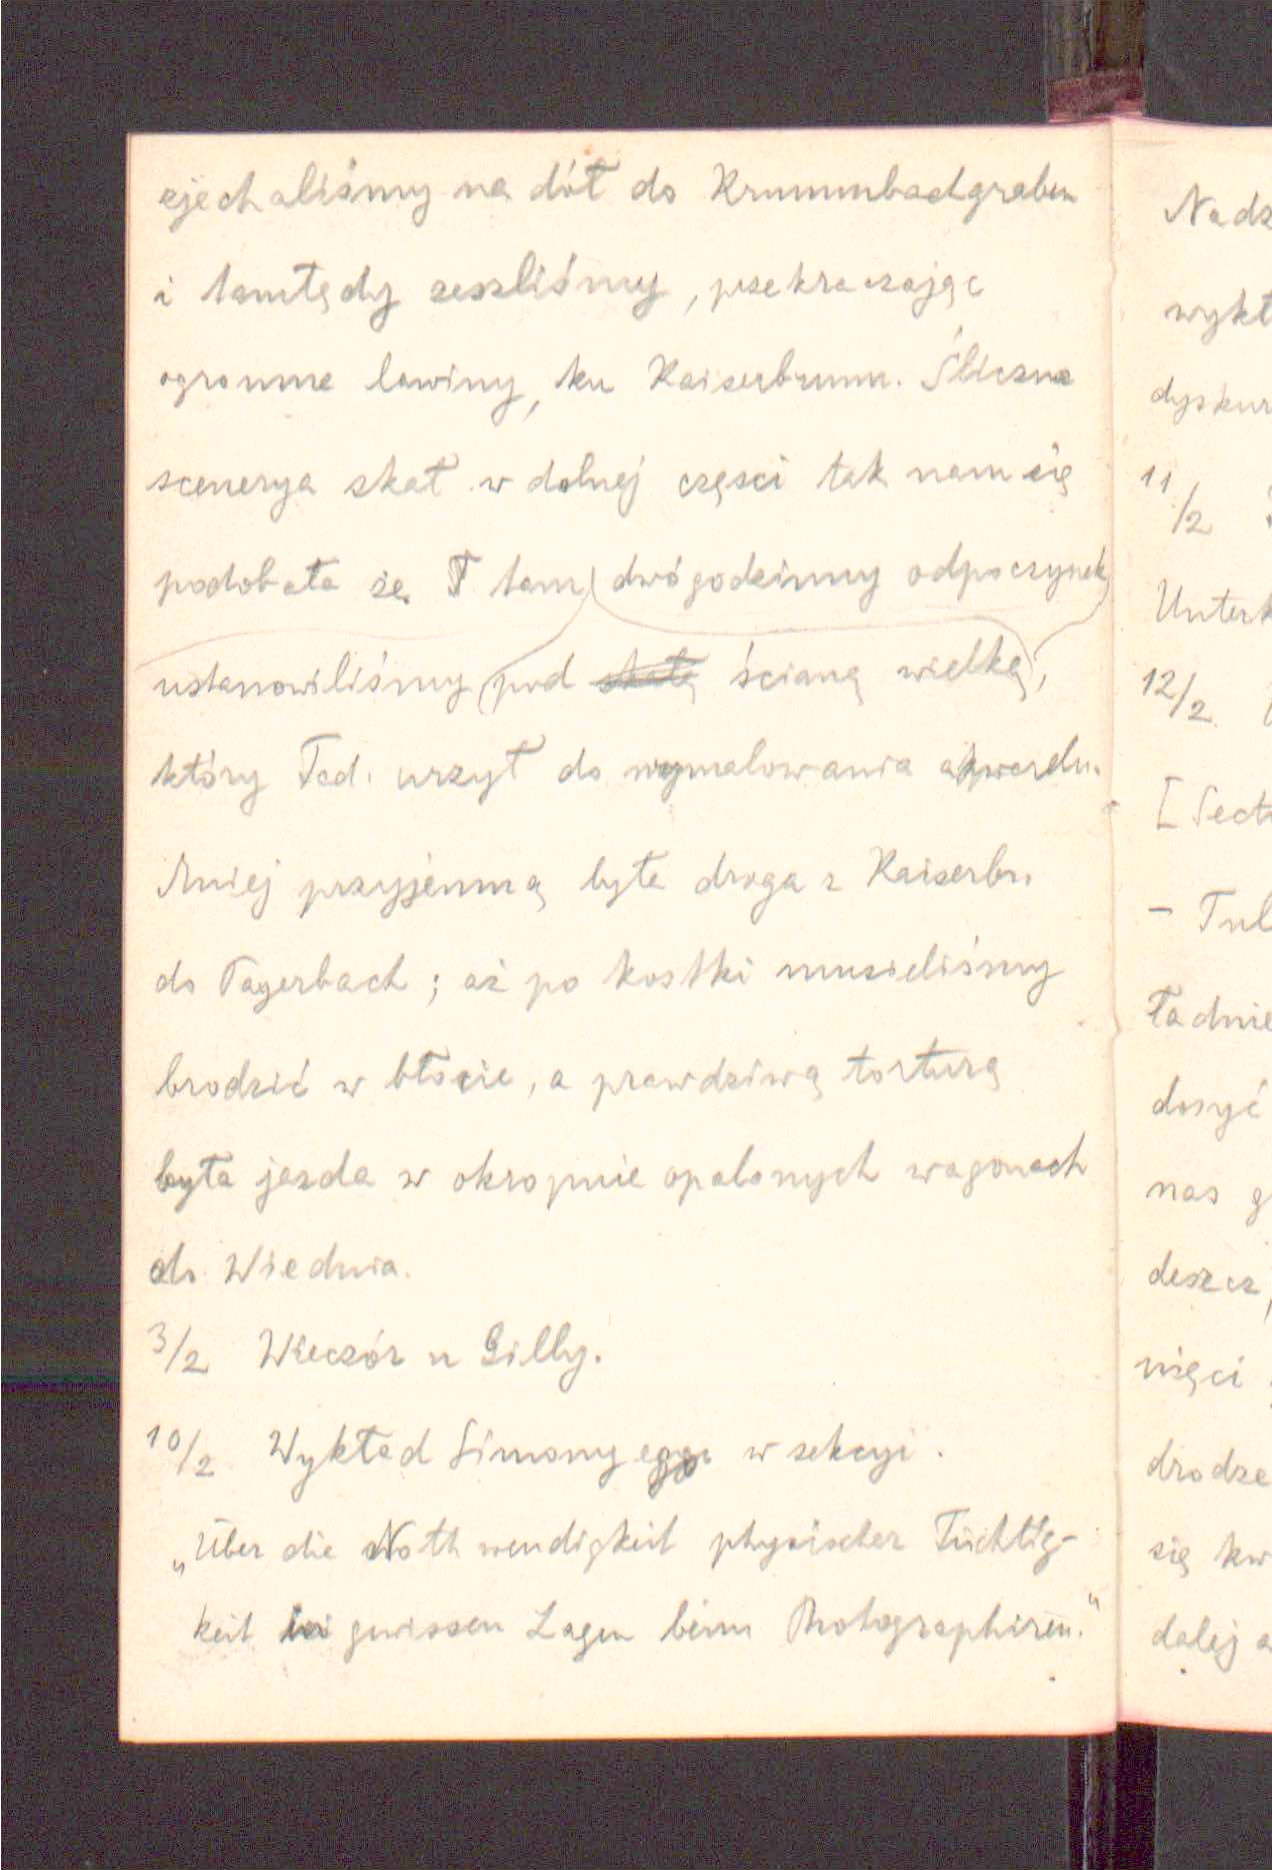 zjechaliśmy na dół do Krummbachgraben
i tamtędy zeszliśmy, przekraczając
ogromne lawiny, ku Kaiserbrunn. Śliczna
scenerya skał w dolnej częsci tak nam się
podobała że tam dwógodzinny odpoczynek
ustanowiliśmy pod skałą ścianą wielką,
który Tad. urzył do wymalowania akwarelu.
Mniej przyjemną była droga z Kaiserbr.
do Payerbach; aż po kostki musieliśmy
brodzić w błocie, a prawdziwą torturą
była jazda w okropnie opalonych wagonach
do Wiednia.
3/2 Wieczór u Gilly.
10/2 Wykład Simonyego w sekcyi.
„Über die Nothwendigkeit physischer Tüchtig-
keit bei gewissen Lagen beim Photographiren.“
Nadz
wykł
dyskur
11/2
Unterk
12/2
[Sect
– Tul
ładnie
dosyć
nas g
deszcz,
nięci
drodze
się kw
dalej a